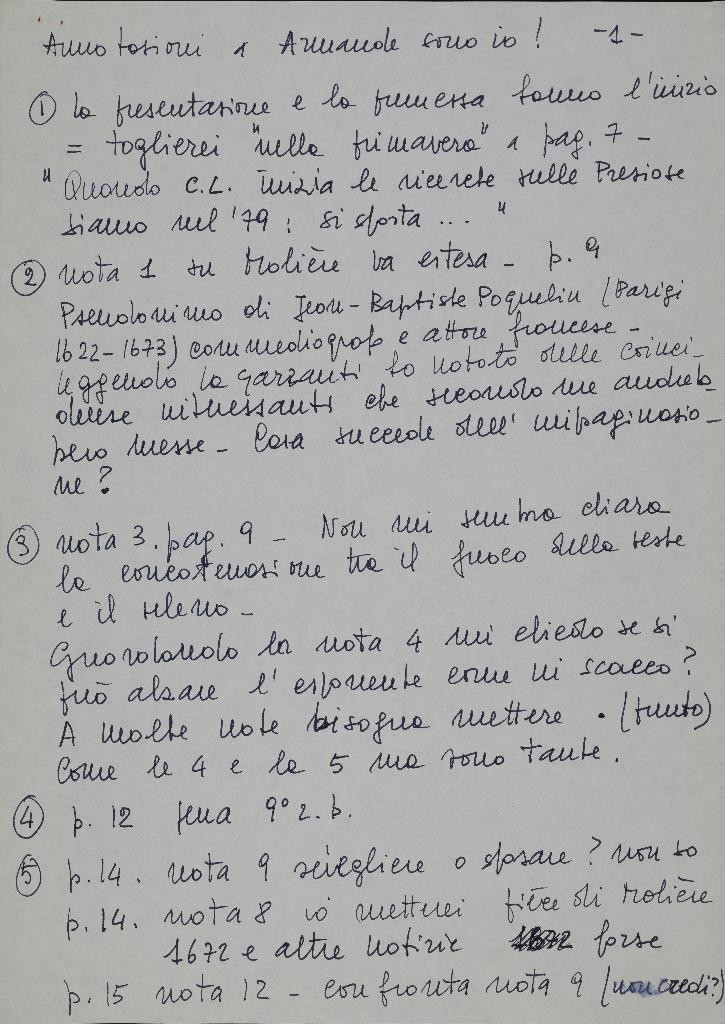 Annotazioni a Armande sono io! -1-
① La presentazione e la premessa fanno l'inizio
= toglierei "nella primavera" a pag. 7 -
" Quando C.L. inizia le ricerche sulle Preziose
siamo nel '79: si sposta ... "
② nota 1 su Molière va estesa - p. 9
Pseudonimo di Jean-Baptiste Poquelin (Parigi
1622-1673) commediografo e attore francese -
leggendo la Garzanti ho notato delle coinci-
denze interessanti che secondo me andreb-
bero messe - Cosa succede dell'impaginazio-
ne?
③ nota 3. pag. 9 - Non mi sembra chiara
la concatenazione tra il fuoco della
e il veleno -
Guardando la nota 4 mi chiedo se si
può alzare l'esponente come in scacco?
A molte note bisogna mettere . (punto)
Come le 4 e la 5 ma sono tante.
④ p. 12 pena 9° r. b.
⑤ p. 14. nota 9 scegliere o sposare? non so
p. 14. nota 8 io metterei pièce di Molière
1672 e altre notizie forse
p. 15 nota 12 - confronta nota 9 (non credi?)